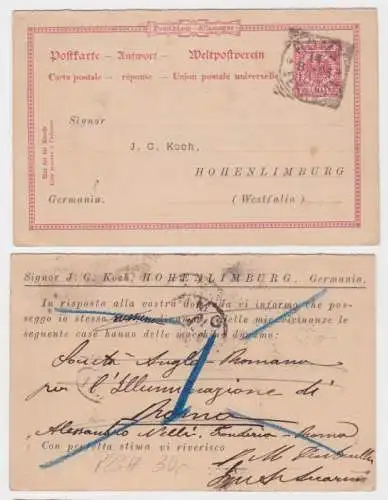 Deutschland — Allemagne
Postkarte — Antwort — Weltpostverein
Carte postale — réponse — Union postale universelle
Signor
J. G. Koch,
HOHENLIMBURG
Germania.
(Westfalia)
Signor J. G. Koch, HOHENLIMBURG, Germania.
In risposta alla vostra domanda vi informo che pos-
seggo io stesso delle micivinanze le
seguente case hanno delle macchine dinamo:
Società Anglo-Romana
per l'Illuminazione di
Roma
Alessandro Nelli, Fonderia-Roma
Con perfetta stima vi riverisco
30,-